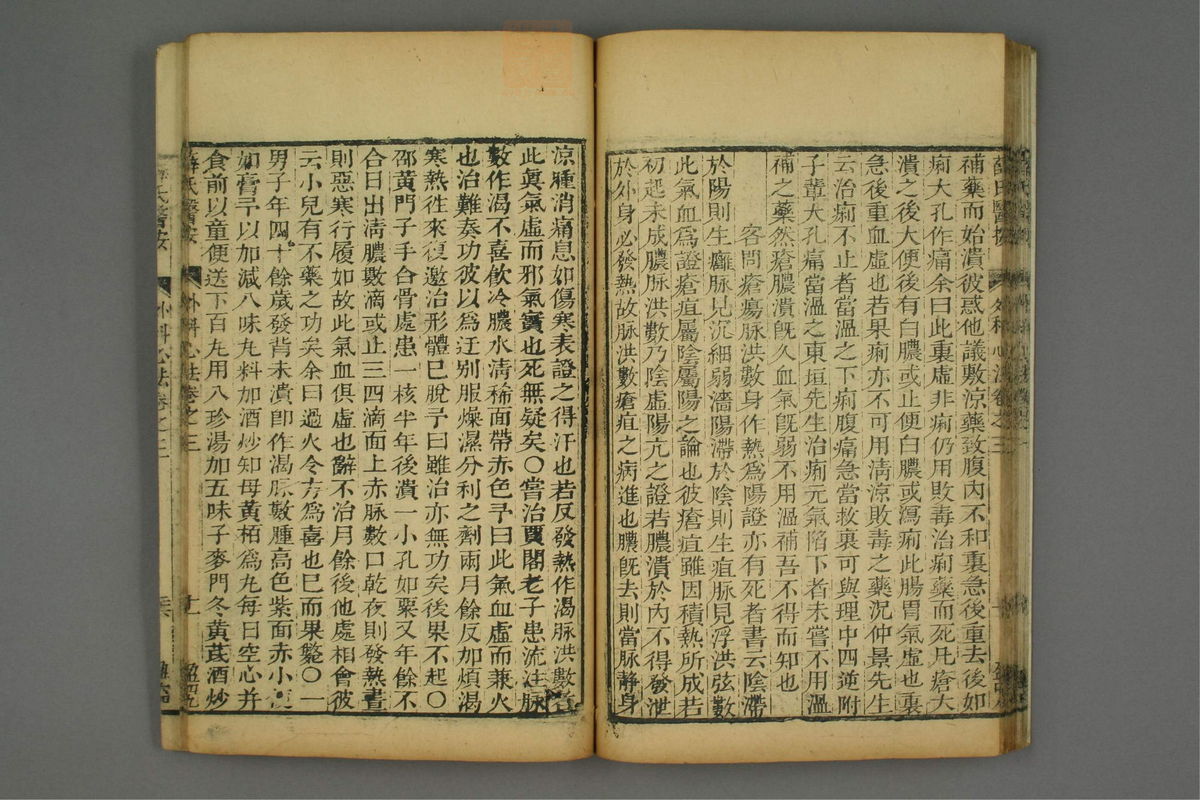 薛氏醫按 外科心法卷之三
補藥而始潰彼惑他議敷涼藥致腹內不和裏急後重去後如
痢大孔作痛余曰此裏虛非痢仍用敗毒治痢藥而死凡瘡大
潰之後大便後有白膿或止便白膿或瀉痢此腸胃氣虛也裏
急後重血虛也若果痢亦不可用淸涼敗毒之藥況仲景先生
云治痢不止者當溫之下痢腹痛急當救裏可與理中四逆附
子輩大孔痛當溫之東垣先生治痢元氣陷下者未嘗不用溫
補之藥然瘡膿潰旣久血氣旣弱不用溫補吾不得而知也
客問瘡瘍脉洪數身作熱爲陽證亦有死者書云陰滯
於陽則生癰脉見沉細弱濇陽滯於陰則生疽脉見浮洪弦數
此氣血爲證瘡疽屬陰屬陽之論也彼瘡疽雖因積熱所成若
初起未成膿脉洪數乃陰虛陽亢之證若膿潰於內不得發泄
於外身必發熱故脉洪數瘡疽之病進也膿旣去則當脉静身
涼腫消痛息如傷寒表證之得汗也若反發熱作渴脉洪數者
此眞氣虛而邪氣實也死無疑矣〇嘗治賈閣老子患流注脉
數作渴不喜飮冷膿水淸稀面帶赤色予曰此氣血虛而兼火
也治難奏功彼以爲迂別服燥濕分利之劑兩月餘反加煩渴
寒熱徃來復邀治形體巳脫予曰雖治亦無功矣後果不起〇
邵黃門子手合骨處患一核半年後潰一小孔如粟又年餘不
合日出淸膿數滴或止三四滴面上赤脉數口乾夜則發熱晝
則惡寒行履如故此氣血俱虛也辭不治月餘後他處相會彼
云小兒有不藥之功矣余曰過火令方爲喜也巳而果斃〇一
男子年四十餘歲發背未潰卽作渴脉數腫高色紫面赤小便
如膏予以加減八味丸料加酒炒知母黃栢爲丸每日空心并
食前以童便送下百丸用八珍湯加五味子麥門冬黃茋酒炒
薛氏醫按 外科心法卷之三